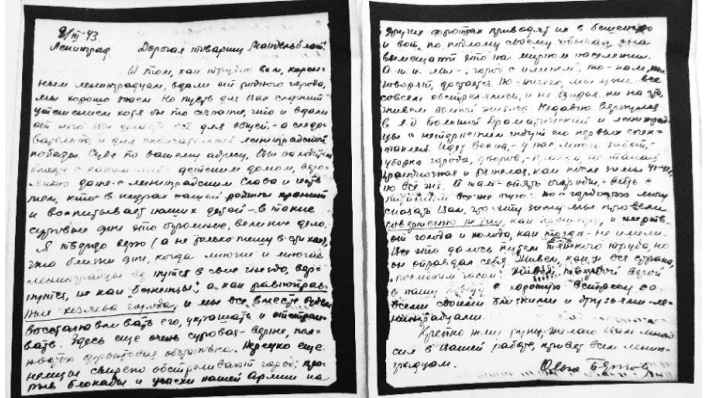 8/III-43
Ленинград Дорогая товарищ
О том, как трудно вам, корен-
ным ленинградцам, вдали от родного города,
мы хорошо знаем. Но пусть для Вас служит
утешением хотя бы то сознание, что и вдали
от него Вы делаете всё для общей - а следо-
вательно и для окончательной ленинградской
победы. Судя по вашему адресу, Вы
с каким-то детским домом,
даже с ленинградским. Слава и
тем, кто в недрах нашей родины хранит
и воспитывает наших детей - в такие
суровые дни это огромное, великое дело.
Я твердо верю (а не только пишу в стихах),
что близки дни, когда многие и многие
ленинградцы вернутся в свои гнезда, вер-
нутся, не как беженцы, а как равноправ-
ные хозяева города и мы все вместе будем
восстанавливать его, украшать и отстраи-
вать. Здесь ещё очень сурова - вернее, пол-
ностью фронтовая обстановка. Нередко ещё
немцы свирепо обстреливают город; про-
рыв блокады и успехи нашей Армии на
других фронтах приводят их в бешенство
и вот, по подлому своему обычаю, они
вымещают это на мирном населении.
А и и мы - город с
говорят, достается. Но ничего, мы уже все
совсем обстрелялись, и не
живем полной жизнью. Недавно вернулся
в Л-д Большой Драматический и ленинград-
цы с нетерпением ждут его первых спек-
таклей. Идет весна - у нас много забот,
уборка города, дворов, правда, не такая
грандиозная и тяжелая, как после зимы 41-42,
но всё же. А там - опять огороды,
Но с гордостью могу
сказать Вам, что эту зиму мы провели
совершенно не так, как прошлую, и
от голода и холода, как тогда - не имели.
Всё это далось путем тяжкого труда, но
он оправдал себя. Живем, как и вся страна,
Живем твердой верой
в нашу победу и скорую встречу со
всеми своими близкими и друзьями - ле-
нинградцами.
Крепко жму руку, желаю Вам много
сил в Вашей работе, привет всем ленин-
градцам.
Ольга Берггольц